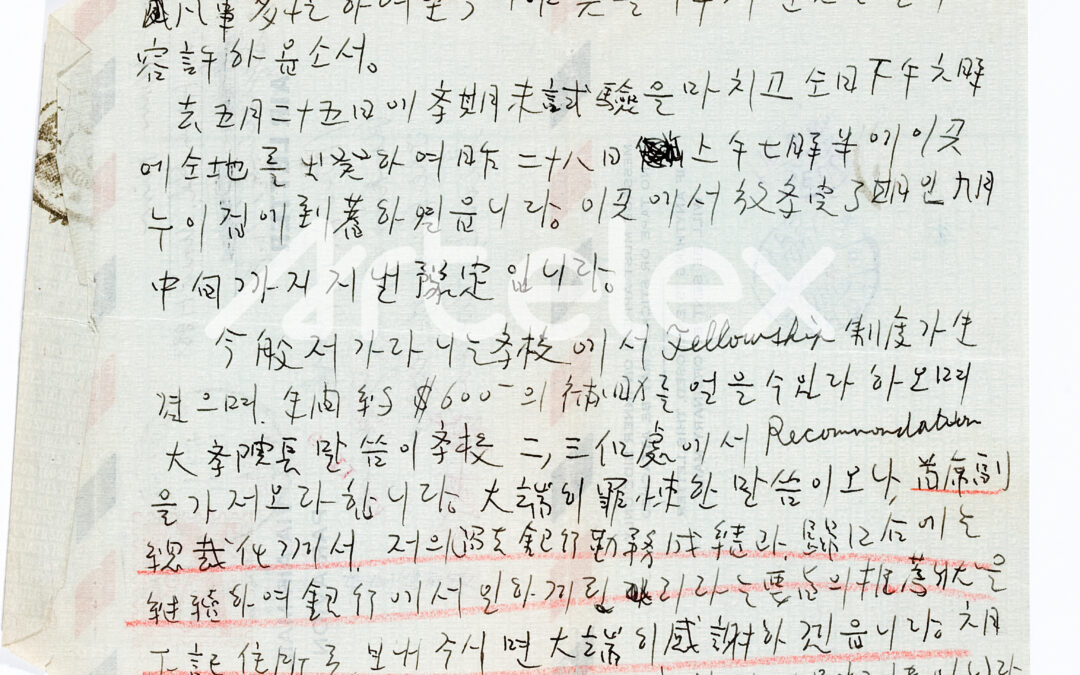 容許하옵소서。
去五月二十五日에 李期末試驗을 마치고 仝日下午六時
에 仝地를 出発하여 昨二十八日 上午七時半에 이곳
누이집에 到着하였읍니다。이곳에서 九月
中旬까지 지낼 豫定입니다。
今般 저가 다니는 学校에서 Fellowship 制度가 生
겼으며, 年内 約 $600-의 補助를 얻을 수 있다 하오며
大学院長 말씀이 学校 二, 三個處에서 Recommondation
을 가져오라 합니다。大端히 罪悚한 말씀이오나, 首席副
總裁任께서, 저의 銀行勤務成績과, 歸國后에는
継続하여 銀行에서 일하게 되리라는 要旨의 推薦状을
下記住所로 보내주시면 大端히 感謝하겠읍니다。
Artelex